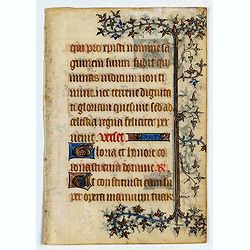 qui pro christi nomine sã
guinem suum fudit qui
minas iudicum non ti
muit nec terrene dignita
tis gloriam quesiuit sed ad
celestia regna feliciter per
uenit. verset
Gloria et honore co
ronasti eum domine. R.
Et constituisti eum su
per opera manuum tuarũ